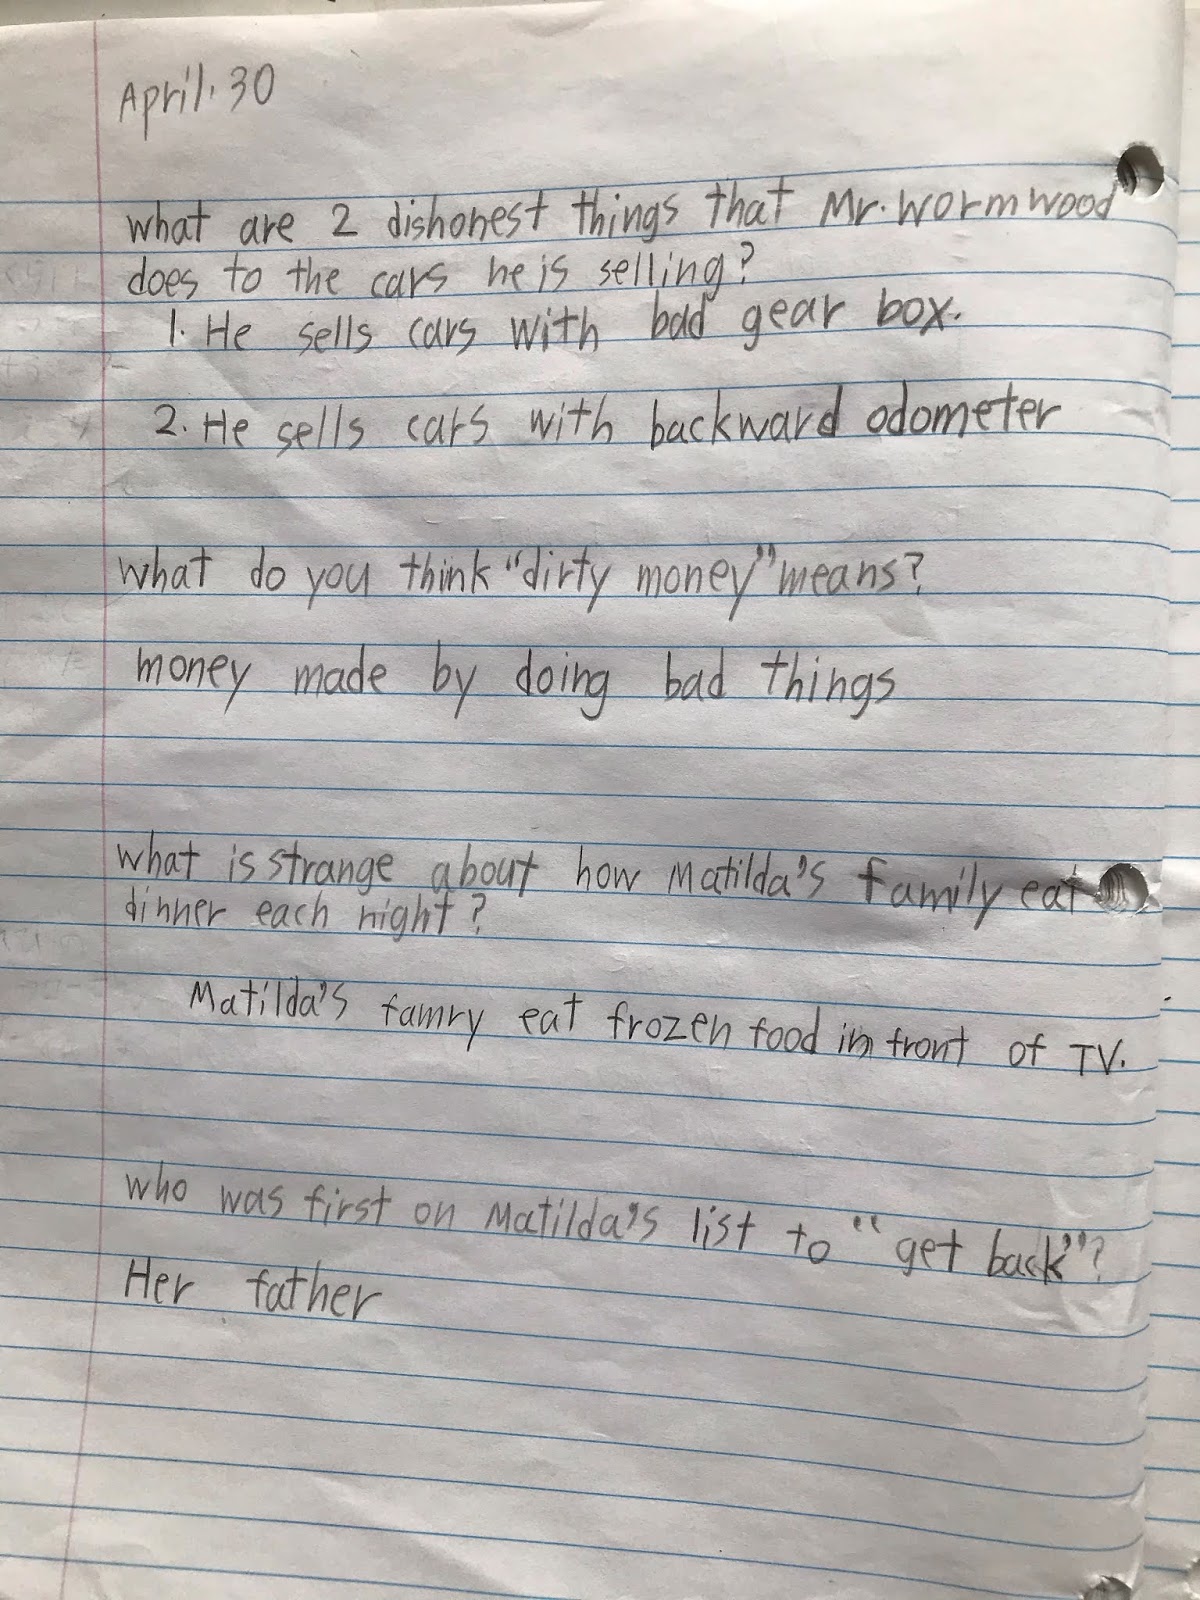 April. 30
what are 2 dishonest things that Mr. Wormwood
does to the cars he is selling?
1. He sells cars with bad gear box.
2. He sells cars with backward odometer
what do you think "dirty money" means?
money made by doing bad things
what is strange about how Matilda's family eat
dinner each night?
Matilda's famry eat frozen food in front of TV.
who was first on Matilda's list to "get back"?
Her father